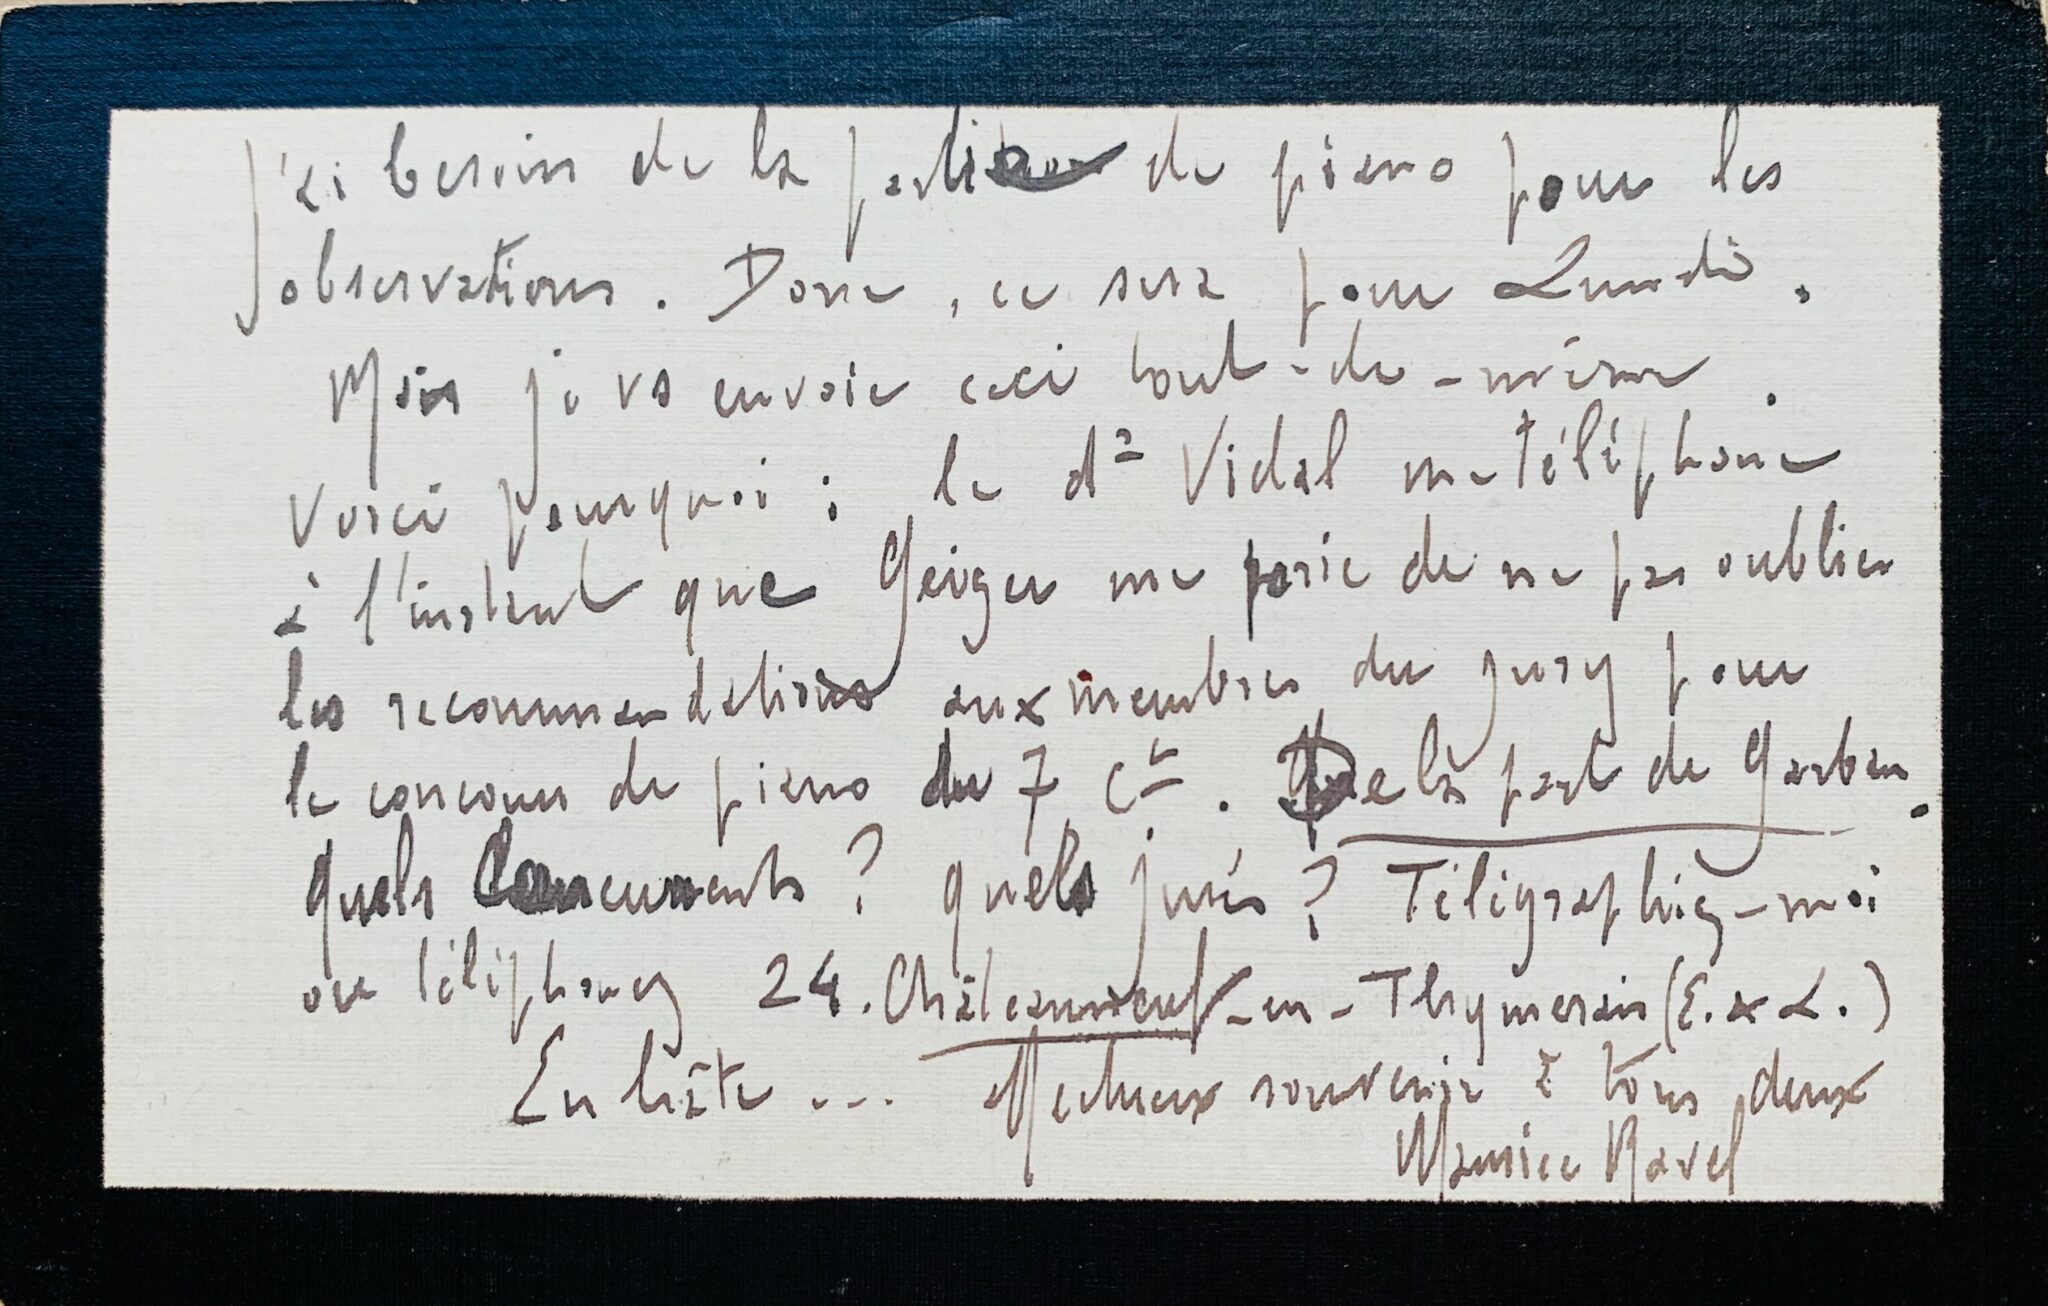 J'ai besoin de la partie de piano pour les
observations. Donc, ce sera pour Lundi.
Mais je vs envoie ceci tout-de-même.
Voici pourquoi : le dr Vidal me téléphone
à l'instant que Geiger me prie de ne pas oublier
les recommandations aux membres du jury pour
le concours de piano du 7 ct. De la part de Garban.
Quels concurrents ? quels jurés ? Télégraphiez-moi
ou téléphonez 24. Châteauneuf-en-Thymerais (E. & L.)
En hâte... Affectueux souvenir à tous deux
Maurice Ravel